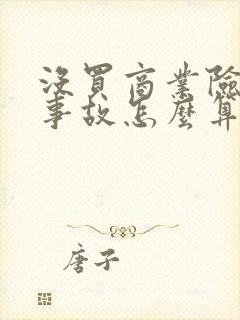 沒買商業險
事故怎麼算
唐子